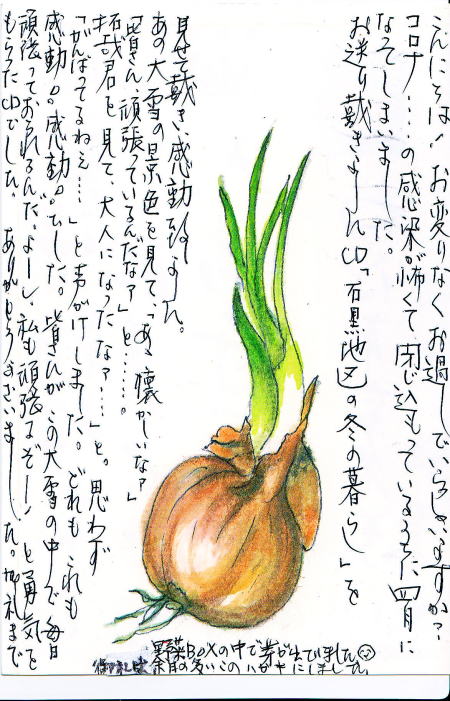 こんにちは！お変りなくお過しでいらっしゃいますか？
コロナ……の感染が怖くて閉じ込もっているうちに四月に
なってしまいました。
お送り戴きましたCD「石黒地区の冬の暮らし」を
見せて戴き、感動致しました。
あの大雪の景色を見て、「あゝ懐かしいなァ」
「皆さん、頑張っているんだなァ」と……。
拓哉君を見て、大人になったなァ…」と。思わず
「がんばってるねぇ…」と声がけしました。どれもこれも
感動。感動。でした。皆さんがこの大雪の中で毎日
頑張っておられるんだ。よーし、私も頑張るぞー！と勇気を
もらったCDでした。ありがとうございました。御礼まで
野菜BOXの中で芽が出てました
余白の多いこのハガキにしました。